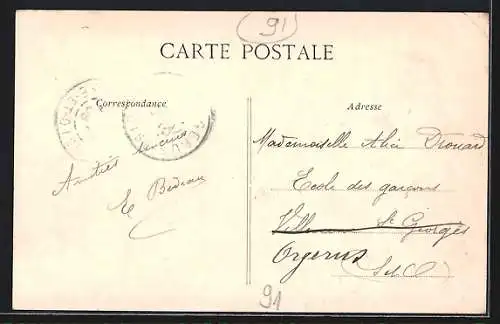 91
CARTE POSTALE
Correspondance
Adresse
Mademoiselle Alice Drouard
Amitiés sincères
Ecole des garçons
E Bedeau
St Georges
Orgerus
(S et O)
91